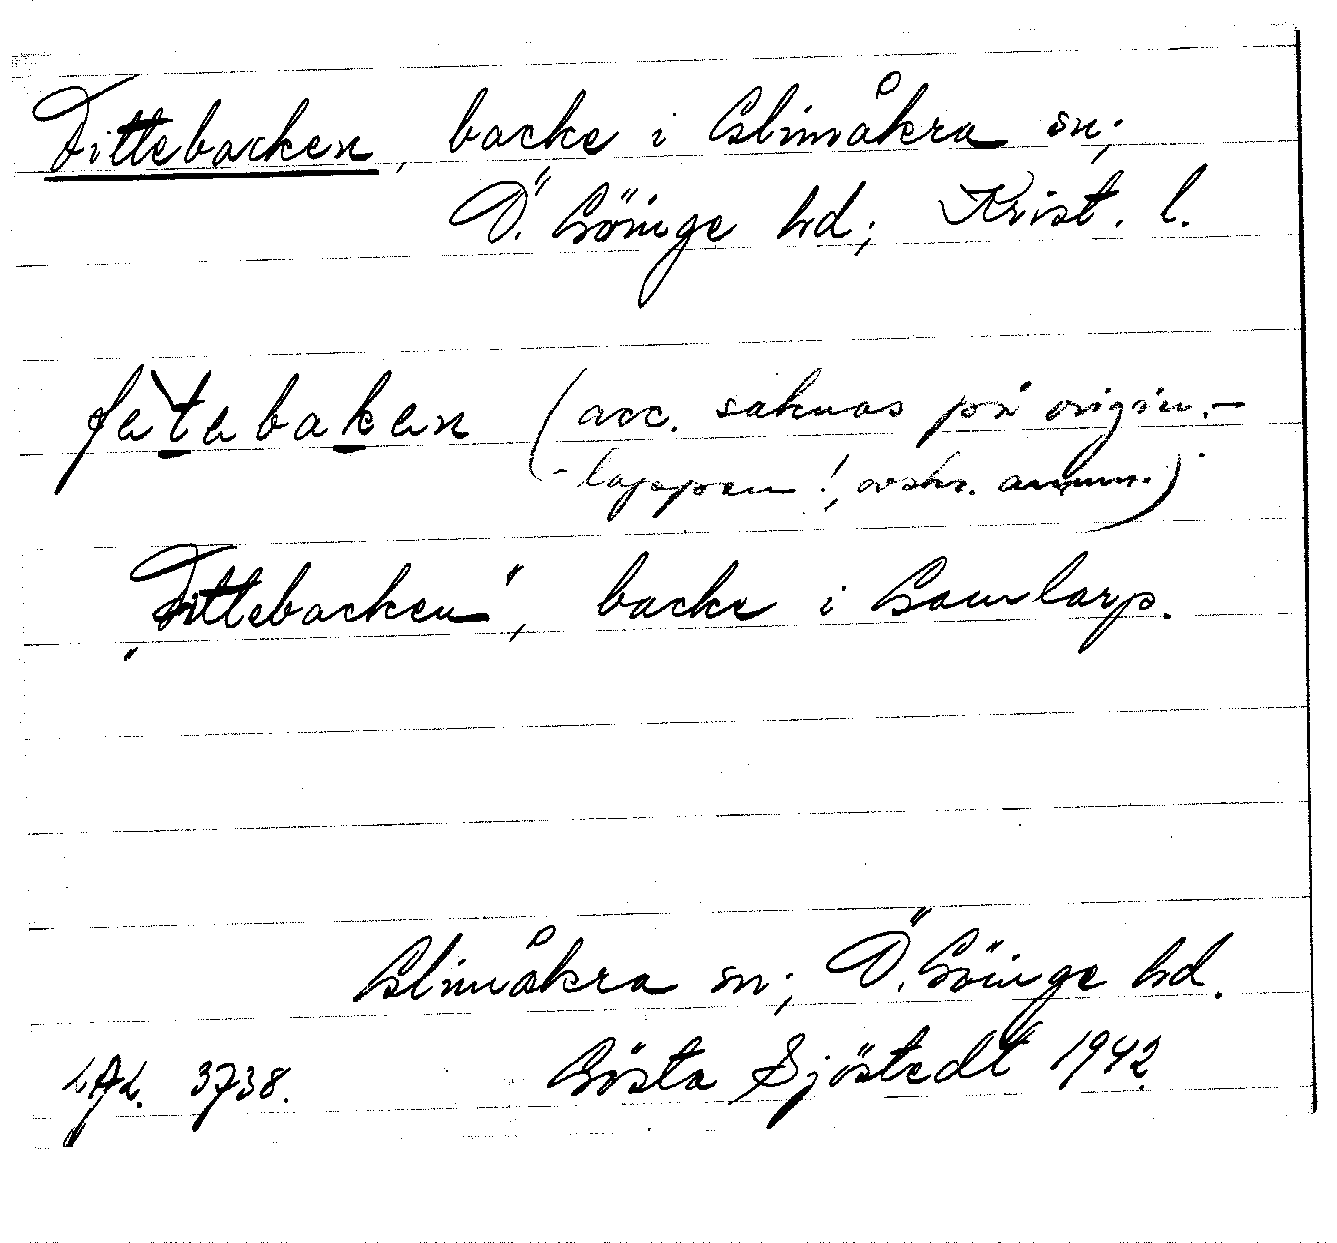 Fittebacken, backe i Glimåkra sn;
Ö. Göinge hd; Krist. l.
fetebaken (acc. saknas på origin.-
-lappen!, avskr. anm.)
"Fittebacken", backe i Gamlarp.
Glimåkra sn; Ö. Göinge hd.
LAL. 3738. Gösta Sjöstedt 1942.